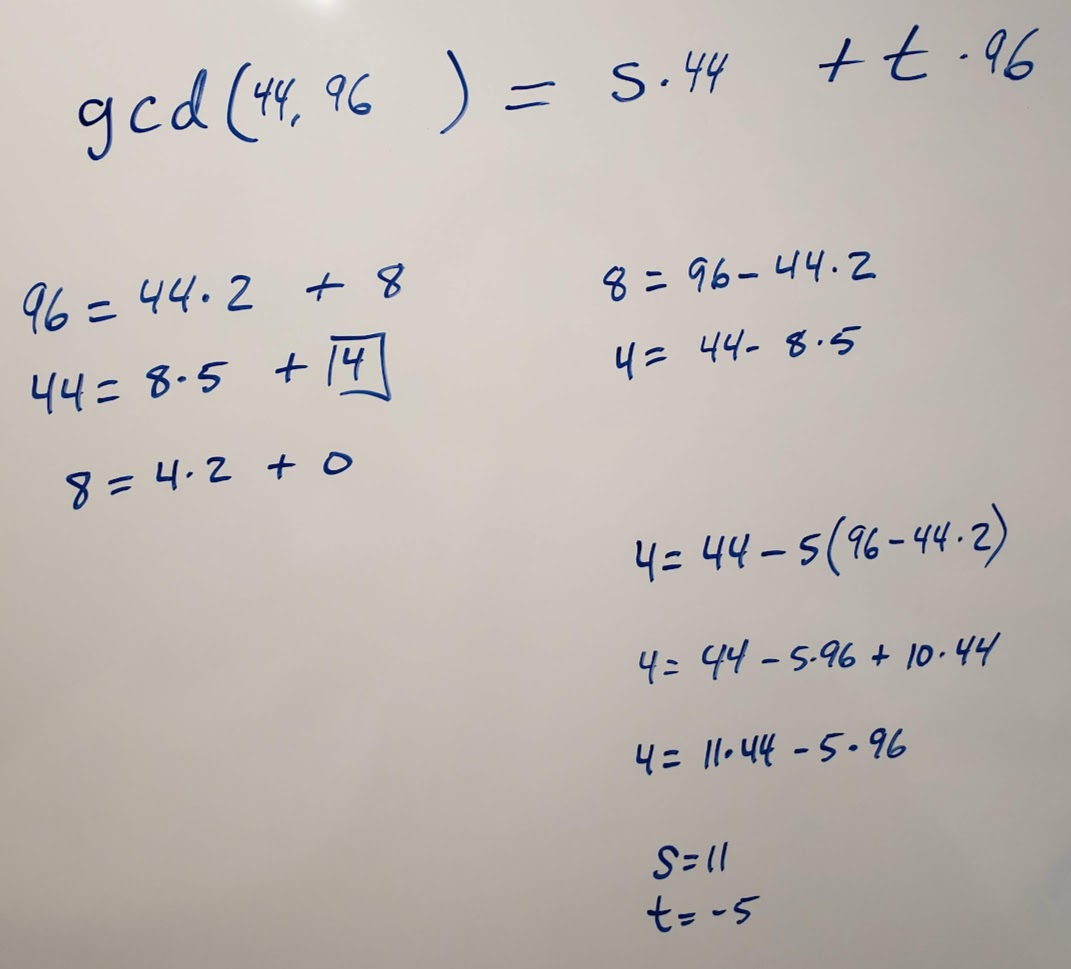 gcd(44, 96) = s·44 + t·96
96 = 44·2 + 8
44 = 8·5 + 4
8 = 4·2 + 0
8 = 96 - 44·2
4 = 44 - 8·5
4 = 44 - 5(96 - 44·2)
4 = 44 - 5·96 + 10·44
4 = 11·44 - 5·96
S = 11
t = -5